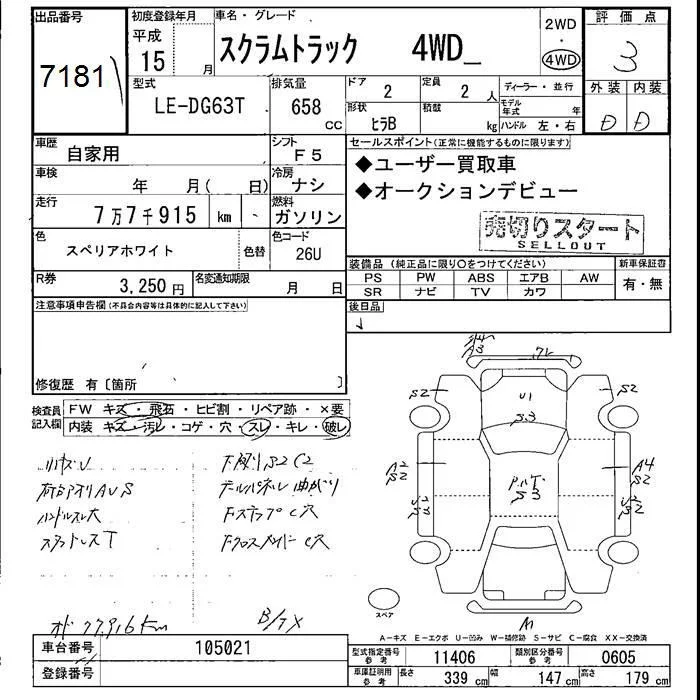 出品番号
7181
初度登録年月
平成
15 月
車名・グレード
スクラムトラック 4WD_
2WD
・
4WD
評価点
3
外装 内装
D D
型式
LE-DG63T
排気量
658 CC
ドア
2
定員
2 人
形状
ヒラB
積載
kg
ディーラー・並行
モデル年式 年
ハンドル 左・右
車歴
自家用
シフト
F5
車検
年 月( 日)
冷房
ナシ
走行
7万7千915 km
燃料
ガソリン
色
スペリアホワイト
色替
色コード
26U
R券
3,250 円
名変通知期限
月 日
セールスポイント(正常に機能するものに限ります)
◆ユーザー買取車
◆オークションデビュー
売切りスタート
SELLOUT
装備品 (純正品に限り○をつけてください)
PS PW ABS エアB AW
SR ナビ TV カワ
新車保証書
有・無
後日品
注意事項申告欄(不具合内容等は具体的に記入して下さい)
修復歴 有〔箇所 〕
検査員記入欄
FW キズ・飛石・ヒビ割・リペア跡・×要
内装 キズ・汚レ・コゲ・穴・スレ・キレ・破レ
小キズU
下廻りS2C2
テールパネル曲がり
ハンドルスレ大
FステップC穴
スタッドレスT
FクロスメンバーC穴
オド 77,916Km
A3
S2
U1
S3
S2
A2
S2
P.ルーフ
S3
A4
S2
スペア
A-キズ E-エクボ U-凹み W-補修跡 S-サビ C-腐食 XX-交換済
車台番号
105021
登録番号
型式指定番号
参考
11406
類別区分番号
参考
0605
車庫証明用
参考
長さ
339 cm
幅
147 cm
高さ
179 cm